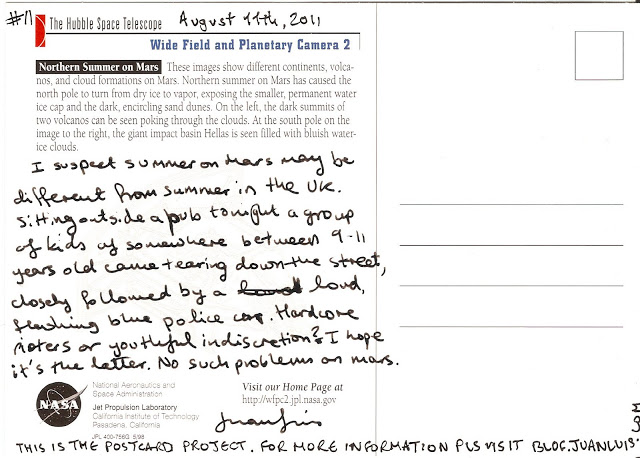 #11
The Hubble Space Telescope August 11th, 2011
Wide Field and Planetary Camera 2
Northern Summer on Mars These images show different continents, volca-
nos, and cloud formations on Mars. Northern summer on Mars has caused the
north pole to turn from dry ice to vapor, exposing the smaller, permanent water
ice cap and the dark, encircling sand dunes. On the left, the dark summits of
two volcanos can be seen poking through the clouds. At the south pole on the
image to the right, the giant impact basin Hellas is seen filled with bluish water-
ice clouds.
I suspect summer on Mars may be
different from summer in the UK.
Sitting outside a pub tonight a group
of kids of somewhere between 9-11
years old came tearing down the street,
closely followed by a loud,
flashing blue police car. Hardcore
rioters or youthful indiscretion? I hope
it's the latter. No such problems on mars.
NASA
National Aeronautics and
Space Administration
Jet Propulsion Laboratory
California Institute of Technology
Pasadena, California
JPL 400-756G 5/98
Visit our Home Page at
http://wfpc2.jpl.nasa.gov
Juanluis
THIS IS THE POSTCARD PROJECT. FOR MORE INFORMATION PLS VISIT BLOG.JUANLUIS